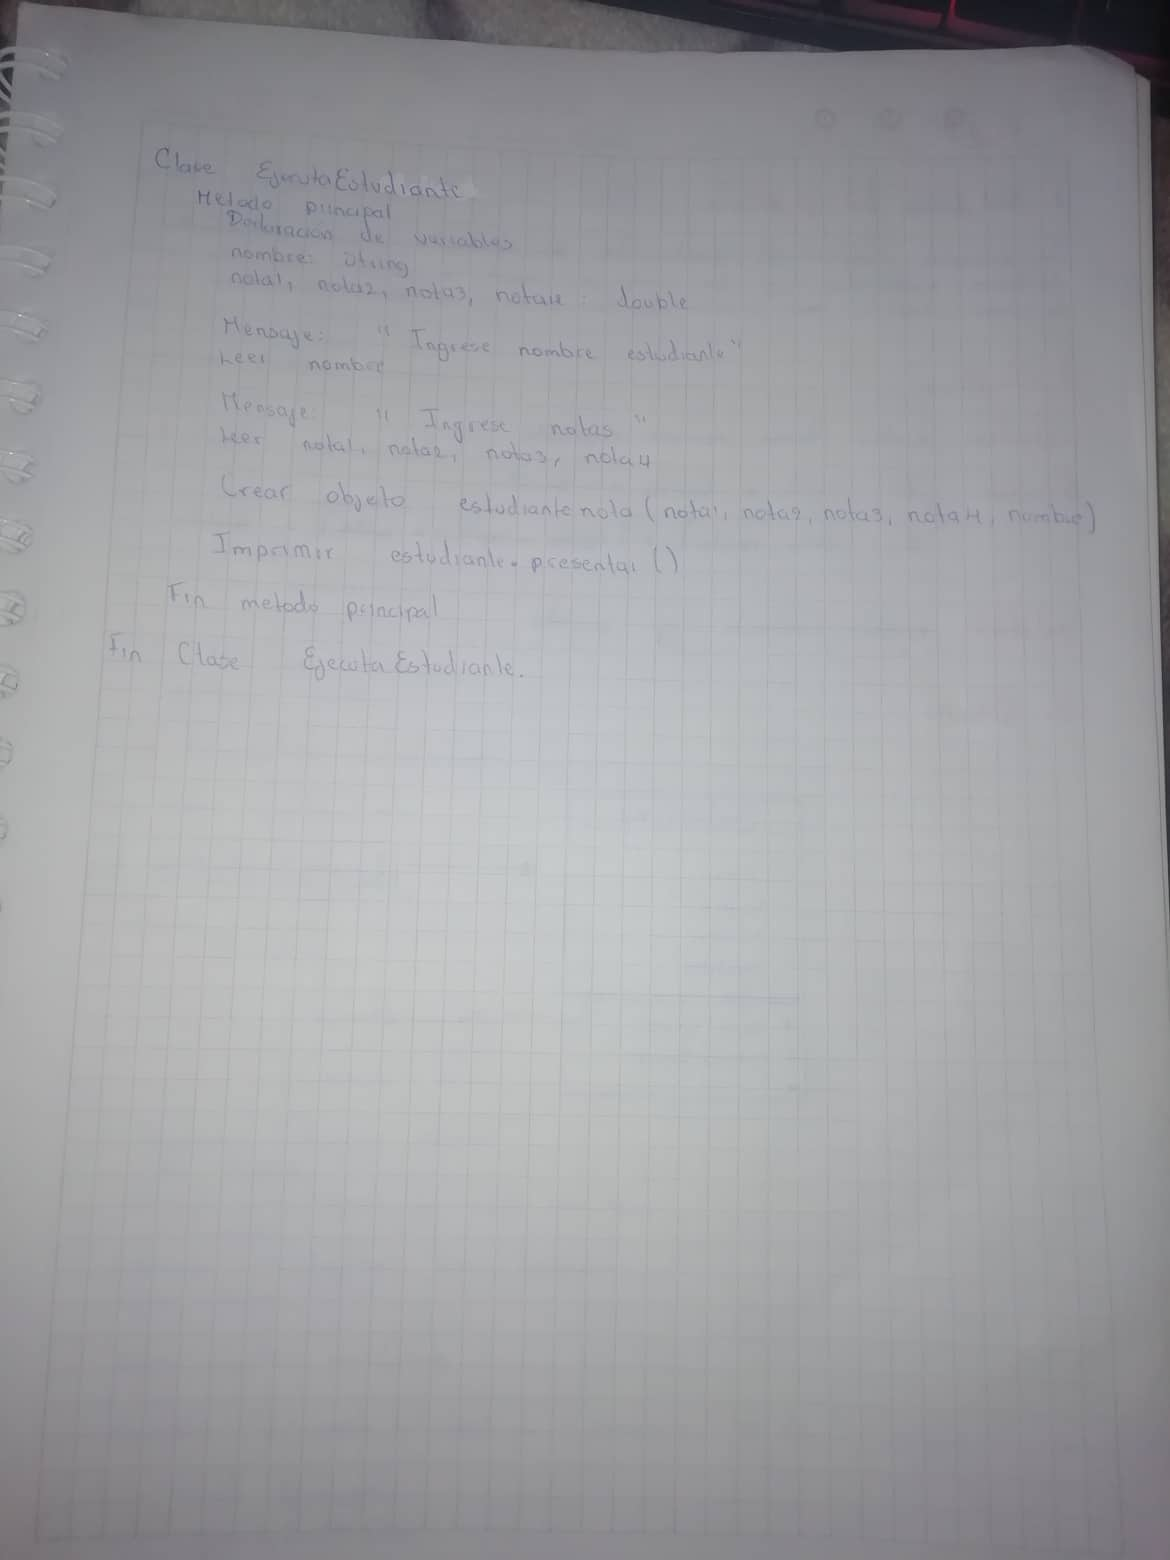 Clase EjecutaEstudiante
Metodo principal
Declaración de variables
nombre: String
nota1, nota2, nota3, nota4 : double
Mensaje: " Ingrese nombre estudiante"
Leer nombre
Mensaje: " Ingrese notas "
Leer nota1, nota2, nota3, nota4
Crear objeto estudiante nota (nota1, nota2, nota3, nota4, nombre)
Imprimir estudiante.presentar ()
Fin metodo principal
Fin Clase EjecutaEstudiante.